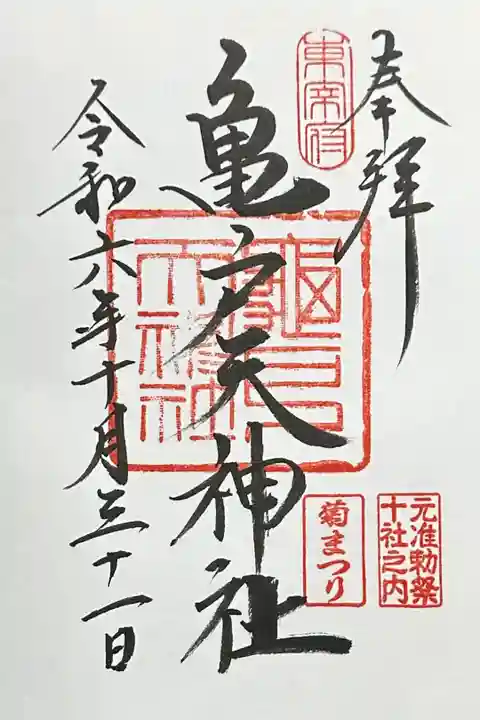 奉拜
東宰府
亀戸天神社
元准勅祭
十社之内
菊まつり
令和六年十月三十一日